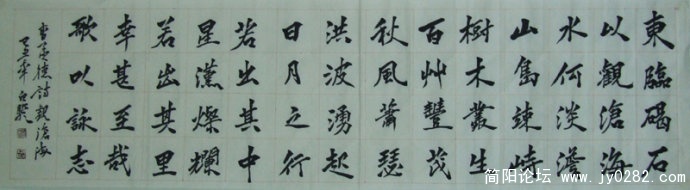 東臨碣石
以觀滄海
水何淡澹
山島竦峙
樹木叢生
百艸豐茂
秋風蕭瑟
洪波湧起
日月之行
若出其中
星漢燦爛
若出其里
幸甚至哉
歌以詠志
曹孟德詩觀滄海
简阳论坛 www.jy0282.com